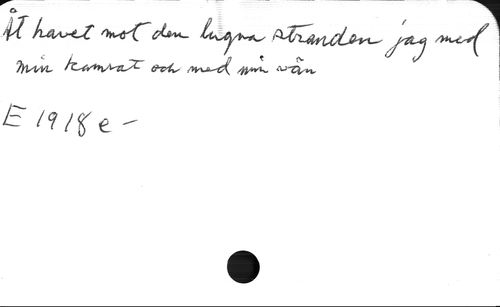 Åt havet mot den lugna stranden jag med
min kamrat och med min vän
E 1918 e -